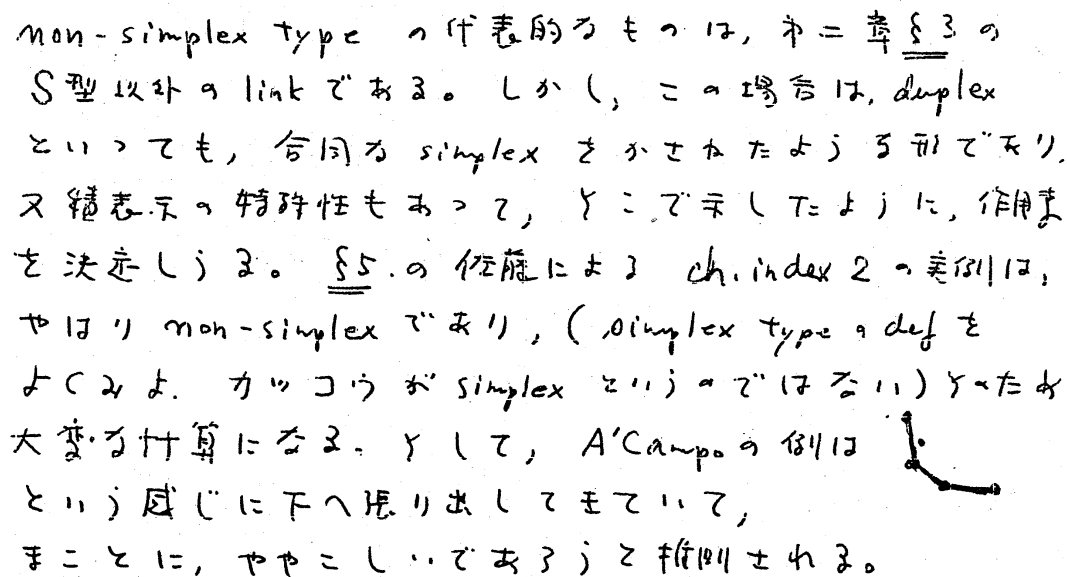 non-simplex type の代表的なものは, 第二章 §3 の
S型以外の link である。しかし, この場合は, duplex
といっても, 合同な simplex をかさねたような形であり,
又積表示の特殊性もあって, そこで示したように, 作用素
を決定しうる。 §5. の佐藤による ch. index 2 の実例は,
やはり non-simplex であり, (simplex type の def を
よくみよ. カッコウが simplex というのではない) そのため
大変な計算になる. そして, A'Campo の例は
という感じに下へ張り出してきていて,
まことに, ややこしいであろうと推測される。